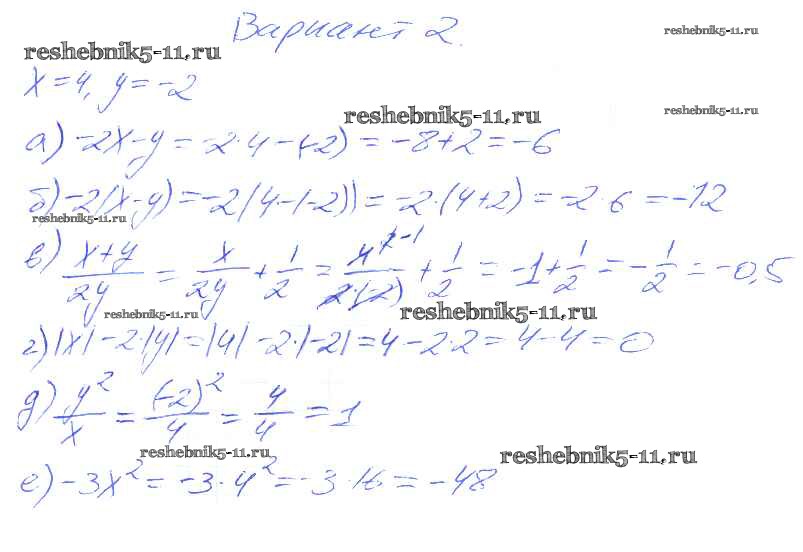 Вариант 2.
reshebnik5-11.ru
reshebnik5-11.ru
x = 4, y = -2
reshebnik5-11.ru
reshebnik5-11.ru
а) -2x-y = -2·4-(-2) = -8+2 = -6
б) -2(x-y) = -2(4-(-2)) = -2·(4+2) = -2·6 = -12
reshebnik5-11.ru
в) (x+y)/(2y) = x/(2y) + 1/2 = 4/(2·(-2)) + 1/2 = -1 + 1/2 = -1/2 = -0,5
reshebnik5-11.ru
reshebnik5-11.ru
г) |x| - 2·|y| = |4| - 2·|-2| = 4 - 2·2 = 4 - 4 = 0
д) y²/x = (-2)²/4 = 4/4 = 1
reshebnik5-11.ru
reshebnik5-11.ru
е) -3x² = -3·4² = -3·16 = -48